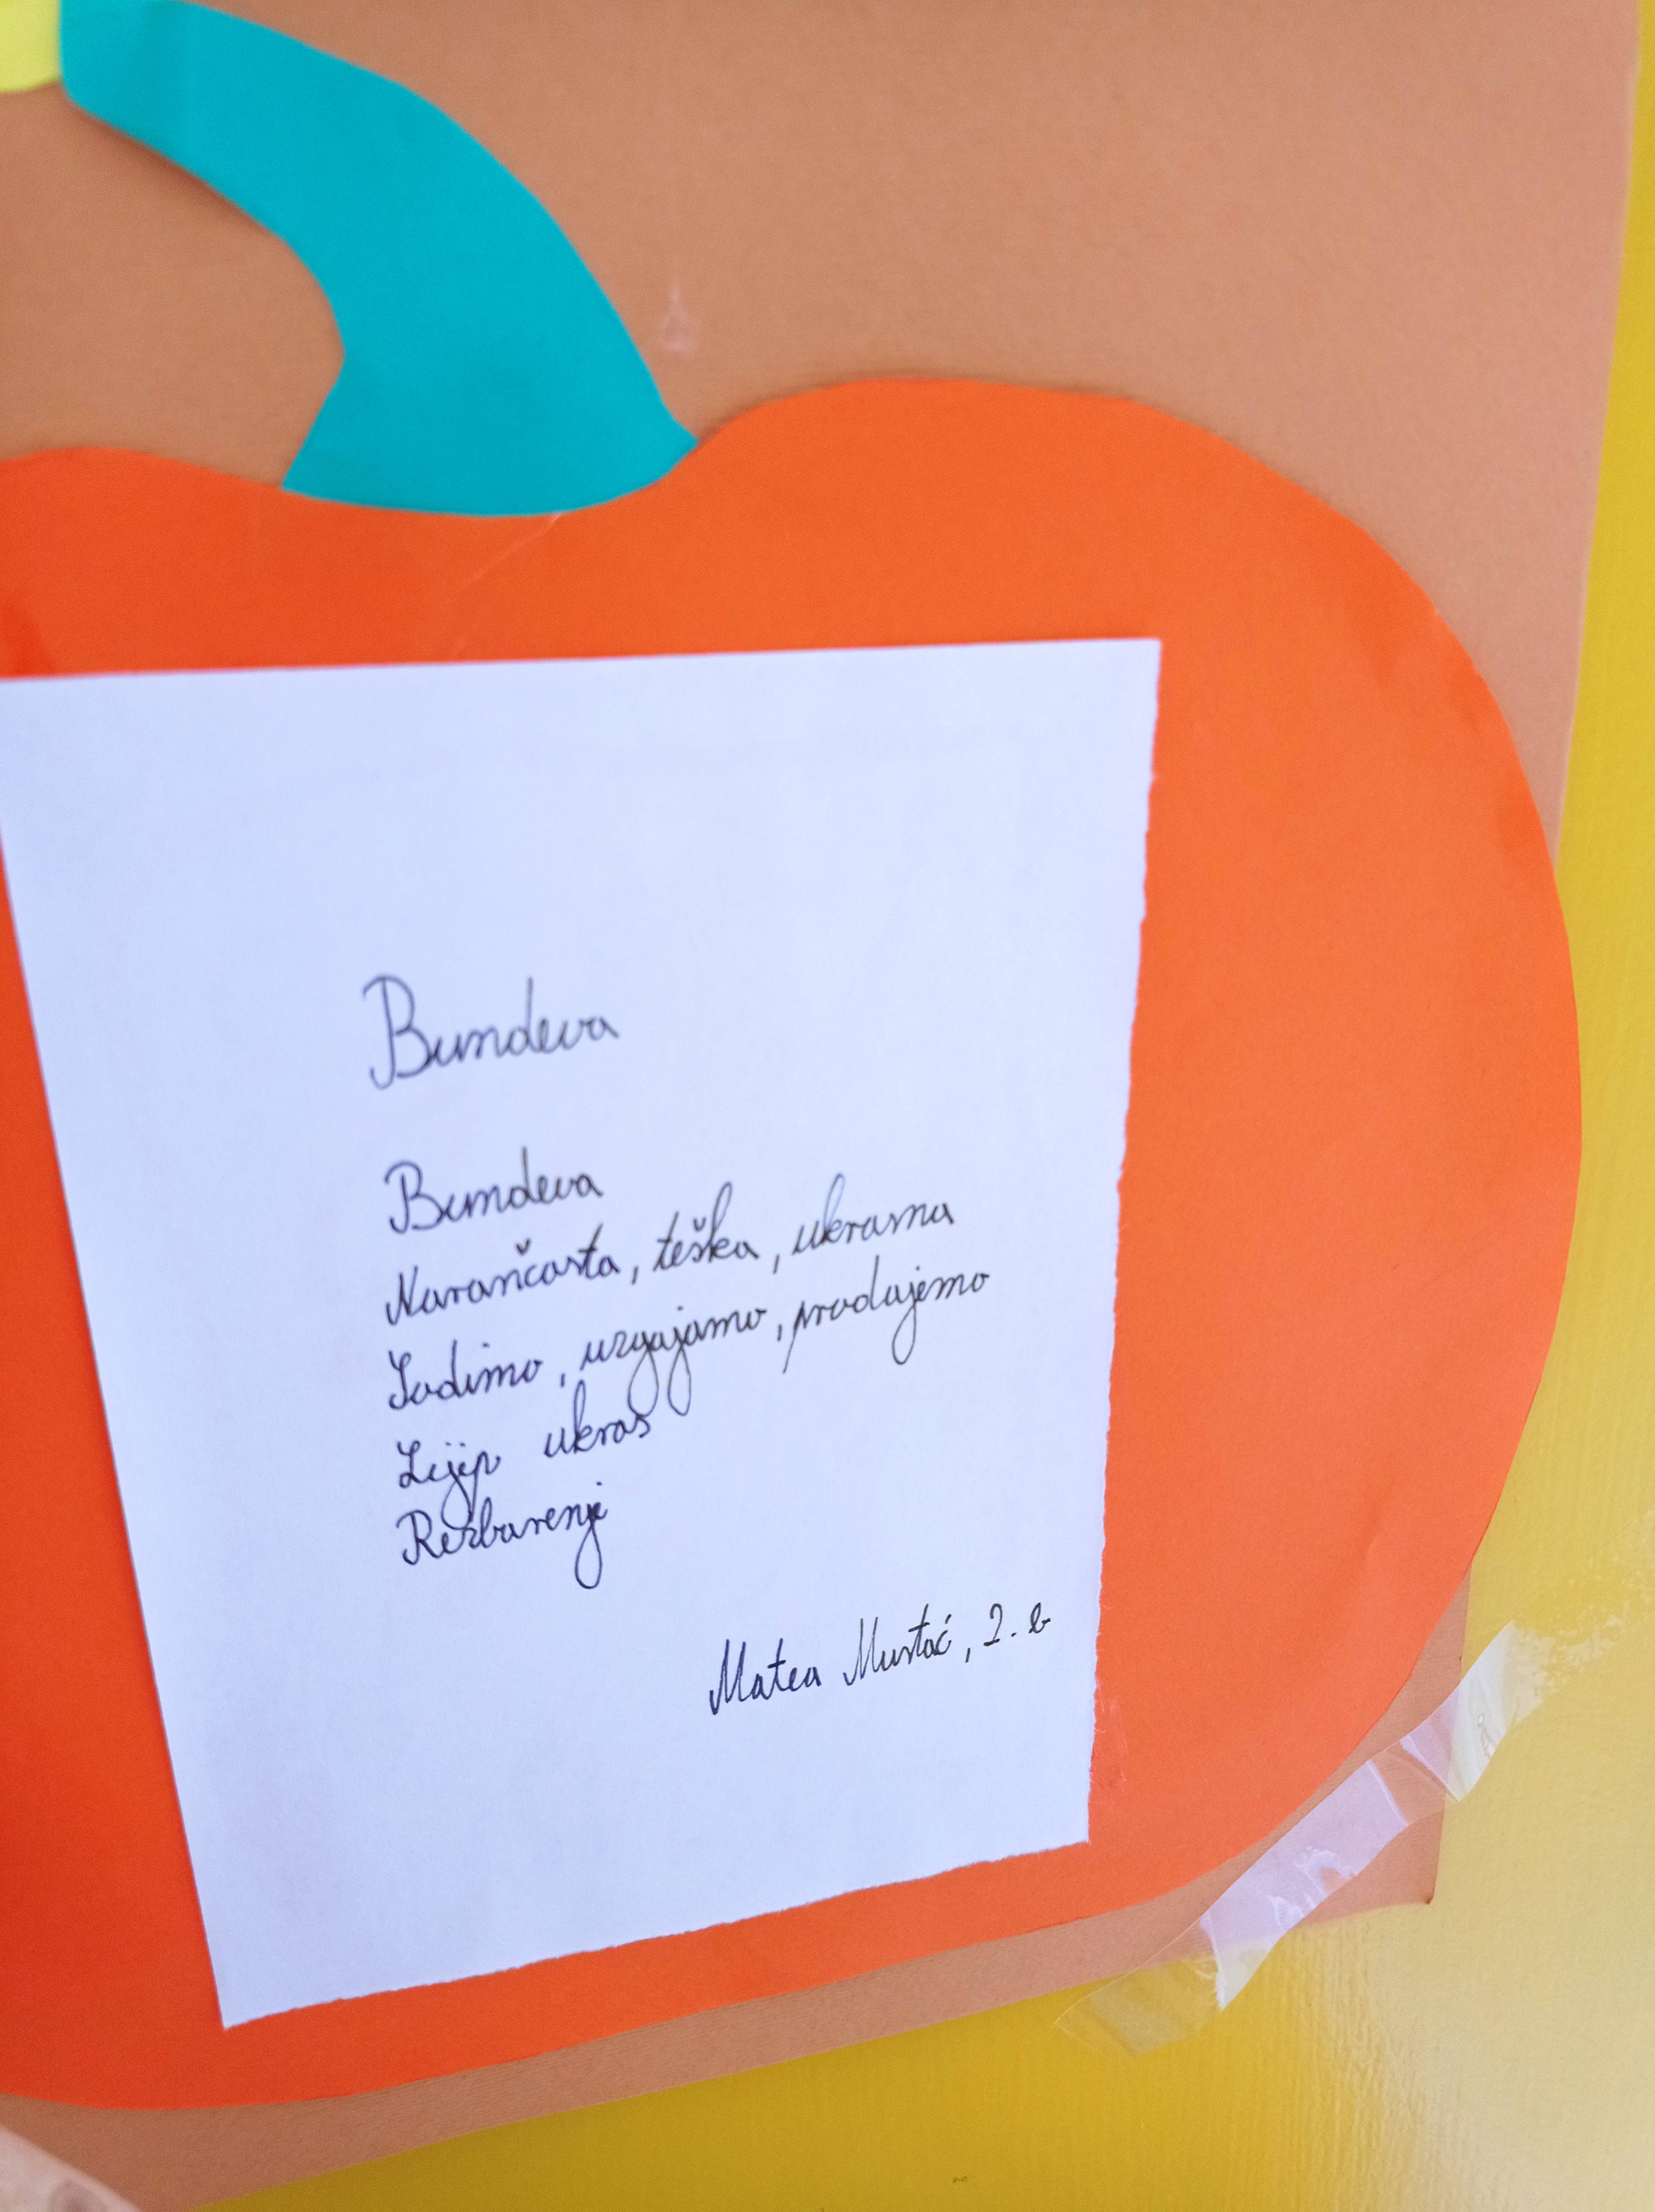 Bundeva
Bundeva
Narančasta, teška, ukrasna
Sadimo, uzgajamo, prodajemo
Lijep ukras
Rezbarenje
Matea Mustać, 2. b